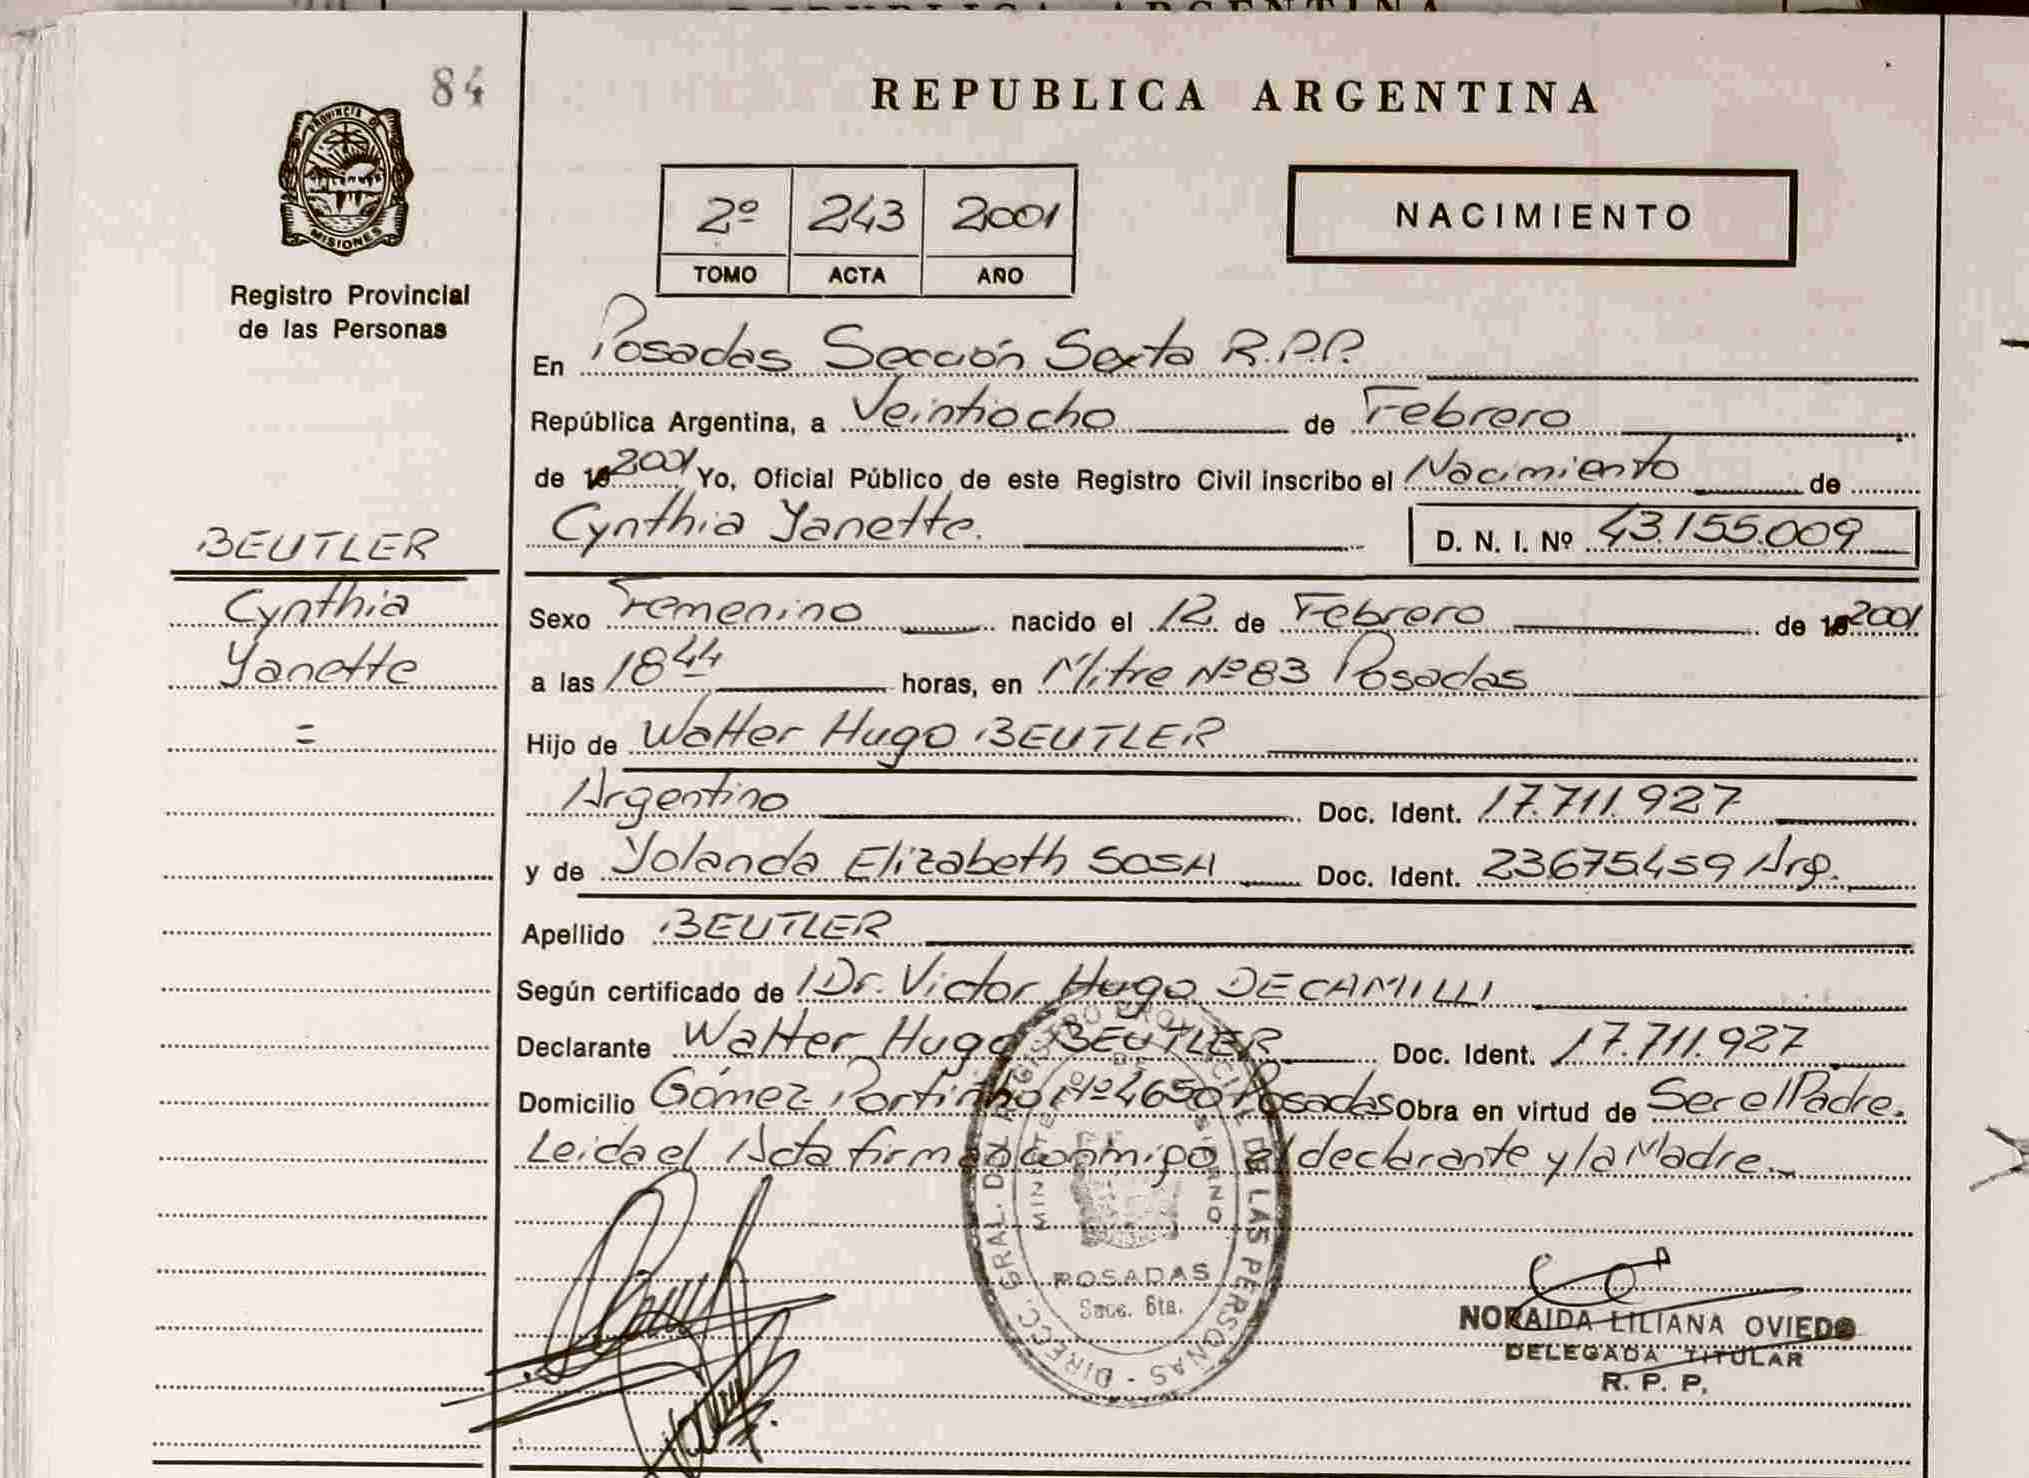 REPUBLICA ARGENTINA
84
PROVINCIA DE
MISIONES
Registro Provincial
de las Personas
2º 243 2001
TOMO ACTA AÑO
NACIMIENTO
En Posadas Sección Sexta R.P.P.
República Argentina, a Veintiocho de Febrero
de 2001 Yo, Oficial Público de este Registro Civil inscribo el Nacimiento de
Cynthia Yanette. D. N. I. Nº 43.155.009
BEUTLER
Cynthia
Yanette
=
Sexo Femenino nacido el 12 de Febrero de 2001
a las 18 44 horas, en Mitre Nº 83 Posadas
Hijo de Walter Hugo BEUTLER
Argentino Doc. Ident. 17.711.927
y de Yolanda Elizabeth SOSA Doc. Ident. 23675459 Arg.
Apellido BEUTLER
Según certificado de Dr. Victor Hugo DECAMILLI
Declarante Walter Hugo BEUTLER Doc. Ident. 17.711.927
Domicilio Gómez Portinho Nº 4650 Posadas Obra en virtud de Ser el Padre.
Leida el Acta firman conmigo el declarante y la Madre.
DIRECC. GRAL. DEL REGISTRO PROVINCIAL DE LAS PERSONAS
POSADAS
Secc. 6ta.
NORAIDA LILIANA OVIEDO
DELEGADA TITULAR
R. P. P.